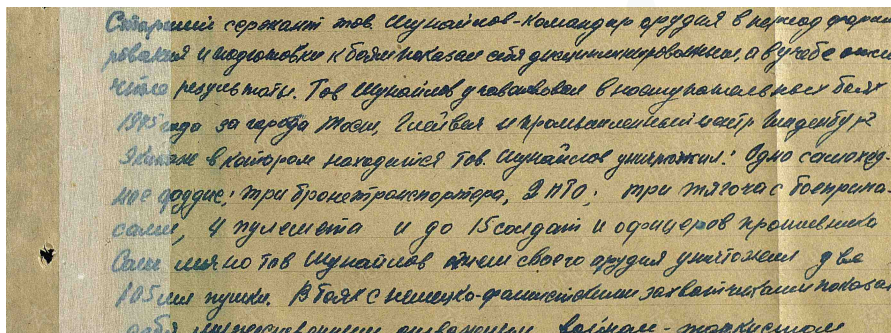 Старший сержант тов. Шунайлов-командир орудия в период форми
рования и подготовки к боям показал себя дисциплинированным, а в учебе отли
чные результаты. Тов Шунайлов участвовал в наступательных боях
1945 года за города Тост, Глейвиц и промышленный центр Гинденбург
Экипаж в котором находится тов. Шунайлов уничтожил: Одно самоход-
ное орудие; три бронетранспортера, 2 ПТО; три тягоча с боеприпа-
сами, 4 пулемета и до 15 солдат и офицеров противника
Сам лично тов Шунайлов огнем своего орудия уничтожил две
105 мм пушки. В боях с немецко-фашистскими захватчиками показал
себя воином-танкистом